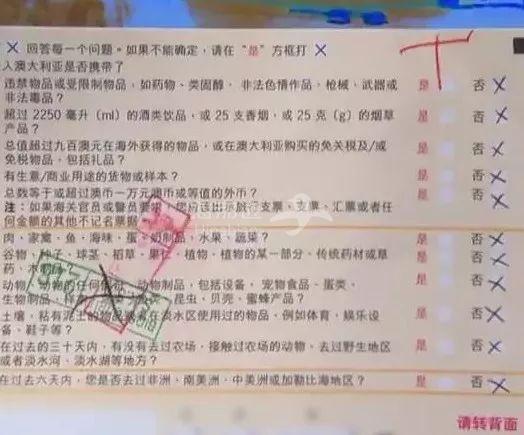 回答每一个问题。如果不能确定，请在“是”方框打
入澳大利亚是否携带了
违禁物品或受限制物品，如药物、类固醇、非法色情作品、枪械、武器或 是 否
非法毒品？
超过 2250 毫升（ml）的酒类饮品，或 25 支香烟，或 25 克（g）的烟草 是 否
产品？
总值超过九百澳元在海外获得的物品，或在澳大利亚购买的免关税及/或 是 否
免税物品，包括礼品？
有生意/商业用途的货物或样本？ 是 否
总数等于或超过澳币一万元澳币或等值的外币？ 是 否
注：如果海关官员或警员要求，您应该出示旅行支票、支票、汇票或者任
何金额的其他不记名票据
肉、家禽、鱼、海味、蛋、奶制品、水果、蔬菜？ 是 否
谷物、种子、球茎、稻草、果仁、植物、植物的某一部分、传统药材或草 是 否
药、木制
动物、动物的任何 动物制品，包括设备、宠物食品、蛋类、 是 否
生物制品、标 昆虫、贝壳、蜜蜂产品？
土壤、粘有泥土的物品或者在淡水区使用过的物品，例如体育、娱乐设 是 否
备、鞋子等？
在过去的三十天内，有没有去过农场，接触过农场的动物、去过野生地区 是 否
或者淡水河、淡水湖等地方？
在过去六天内，您是否去过非洲、南美洲、中美洲或加勒比海地区？ 是 否
请转背面